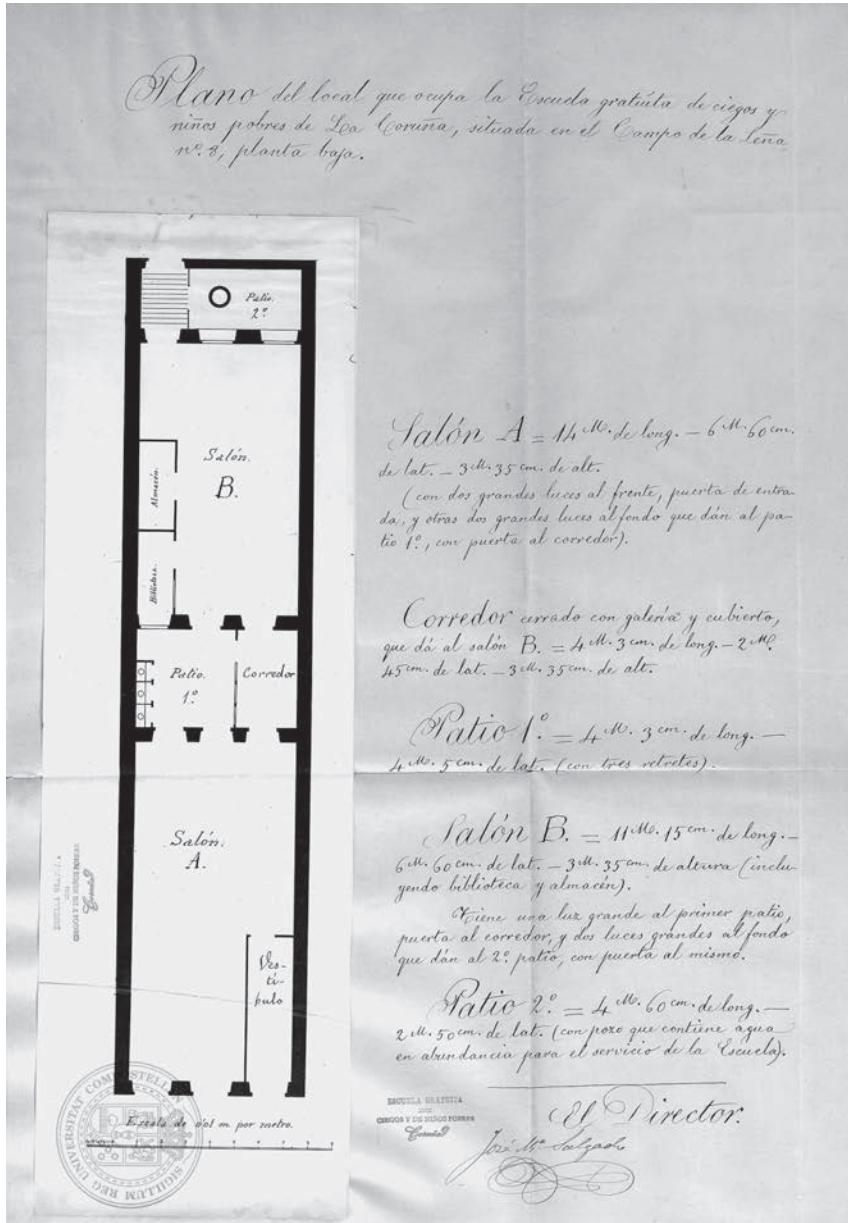 Plano del local que ocupa la Escuela gratuita de ciegos y
niños pobres de La Coruña, situada en el Campo de la Leña
nº. 8, planta baja.
Patio.
2º.
Salón.
B.
Almacén.
Biblioteca.
Patio.
1º.
Corredor
Salón.
A.
Ves-
tí-
bulo
Escala de 0'01 m. por metro.
ESCUELA GRATUITA
CIEGOS Y DE NIÑOS POBRES
Coruña
SIGILLUM REG UNIVERSITAT COMPOSTELLAN
Salón A = 14 M. de long. – 6 M. 60 cm.
de lat. – 3 M. 35 cm. de alt.
(con dos grandes luces al frente, puerta de entra-
da, y otras dos grandes luces al fondo que dán al pa-
tio 1º., con puerta al corredor).
Corredor cerrado con galería y cubierto,
que dá al salón B. = 4 M. 3 cm. de long. – 2 M.
45 cm. de lat. – 3 M. 35 cm. de alt.
Patio 1º. = 4 M. 3 cm. de long. –
4 M. 5 cm. de lat. (con tres retretes).
Salón B. = 11 M. 15 cm. de long. –
6 M. 60 cm. de lat. – 3 M. 35 cm. de altura (inclu-
yendo biblioteca y almacén).
Tiene una luz grande al primer patio,
puerta al corredor, y dos luces grandes al fondo
que dán al 2º. patio, con puerta al mismo.
Patio 2º. = 4 M. 60 cm. de long. –
2 M. 50 cm. de lat. (con pozo que contiene agua
en abundancia para el servicio de la Escuela).
ESCUELA GRATUITA
CIEGOS Y DE NIÑOS POBRES
Coruña
El Director.
José Mª Salgado